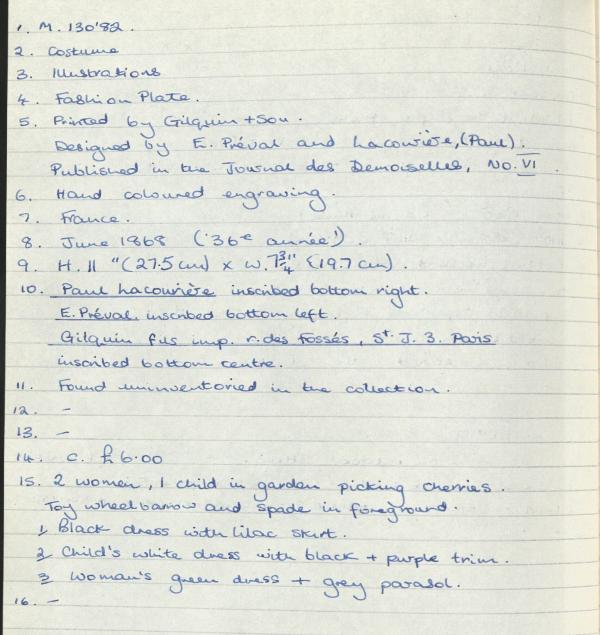 1. M. 130'82.
2. Costume
3. Illustrations
4. Fashion Plate.
5. Printed by Gilquin + Son.
Designed by E. Préval and Lacourière, (Paul).
Published in the Journal des Demoiselles, No. VI.
6. Hand coloured engraving.
7. France.
8. June 1868 ('36e année')
9. H. 11" (27.5 cm) x W. 7 3/4" (19.7 cm).
10. Paul Lacourière inscribed bottom right.
E. Préval inscribed bottom left.
Gilquin fils imp. r. des Fossés, St. J. 3. Paris
inscribed bottom centre.
11. Found uninventoried in the collection.
12. -
13. -
14. c. £6.00
15. 2 women, 1 child in garden picking cherries.
Toy wheelbarrow and spade in foreground.
1 Black dress with lilac skirt.
2 Child's white dress with black + purple trim.
3 Woman's green dress + grey parasol.
16. -